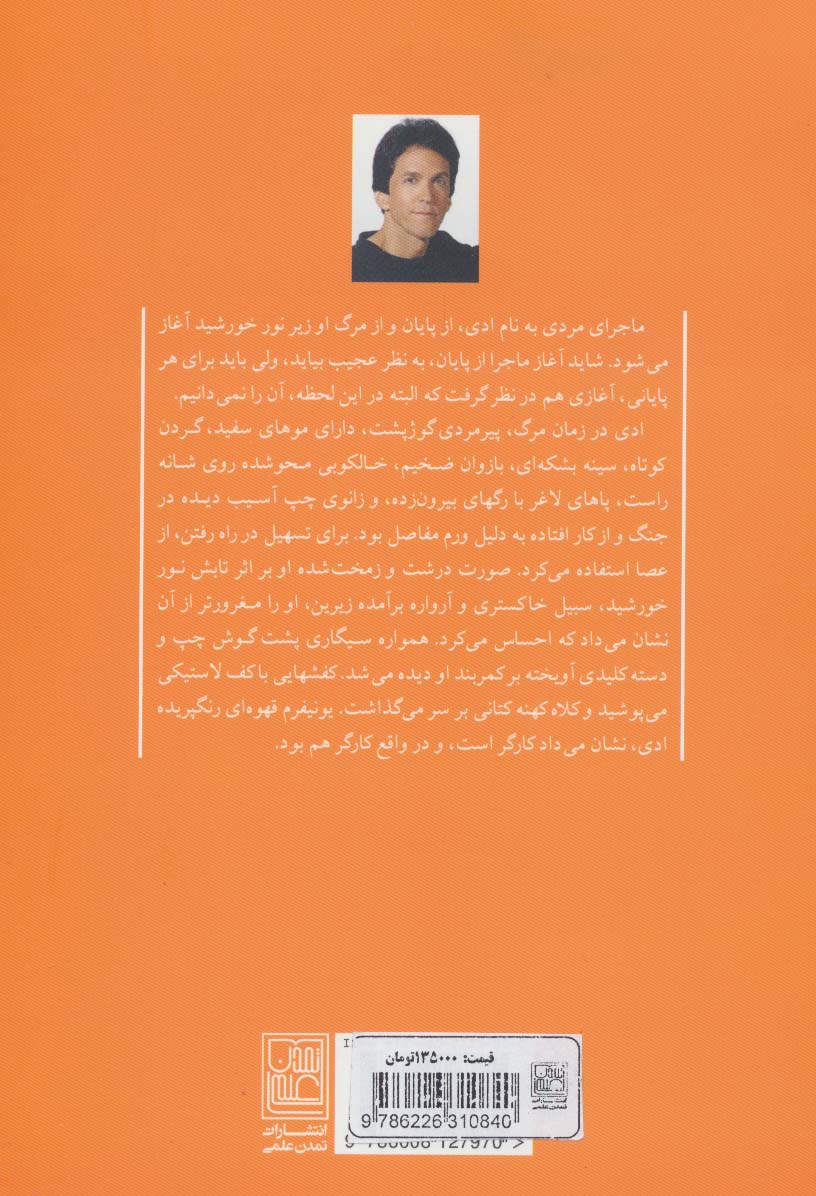 ماجرای مردی به نام ادی، از پایان و از مرگ او زیر نور خورشید آغاز
می‌شود. شاید آغاز ماجرا از پایان، به نظر عجیب بیاید، ولی باید برای هر
پایانی، آغازی هم در نظر گرفت که البته در این لحظه، آن را نمی‌دانیم.
ادی در زمان مرگ، پیرمردی گوژپشت، دارای موهای سفید، گردن
کوتاه، سینه بشکه‌ای، بازوان ضخیم، خالکوبی محوشده روی شانه
راست، پاهای لاغر با رگهای بیرون‌زده، و زانوی چپ آسیب دیده در
جنگ و از کار افتاده به دلیل ورم مفاصل بود. برای تسهیل در راه رفتن، از
عصا استفاده می‌کرد. صورت درشت و زمخت‌شده او بر اثر تابش نور
خورشید، سبیل خاکستری و آرواره برآمده زیرین، او را مغرورتر از آن
نشان می‌داد که احساس می‌کرد. همواره سیگاری پشت گوش چپ و
دسته کلیدی آویخته بر کمربند او دیده می‌شد. کفشهایی با کف لاستیکی
می‌پوشید و کلاه کهنه کتانی بر سر می‌گذاشت. یونیفرم قهوه‌ای رنگپریده
ادی، نشان می‌داد کارگر است، و در واقع کارگر هم بود.
تمدن علمی
انتشارات
تمدن علمی
قیمت: ۱۳۵۰۰۰تومان
تمدن علمی
انتشارات
تمدن علمی
9 786226 310840